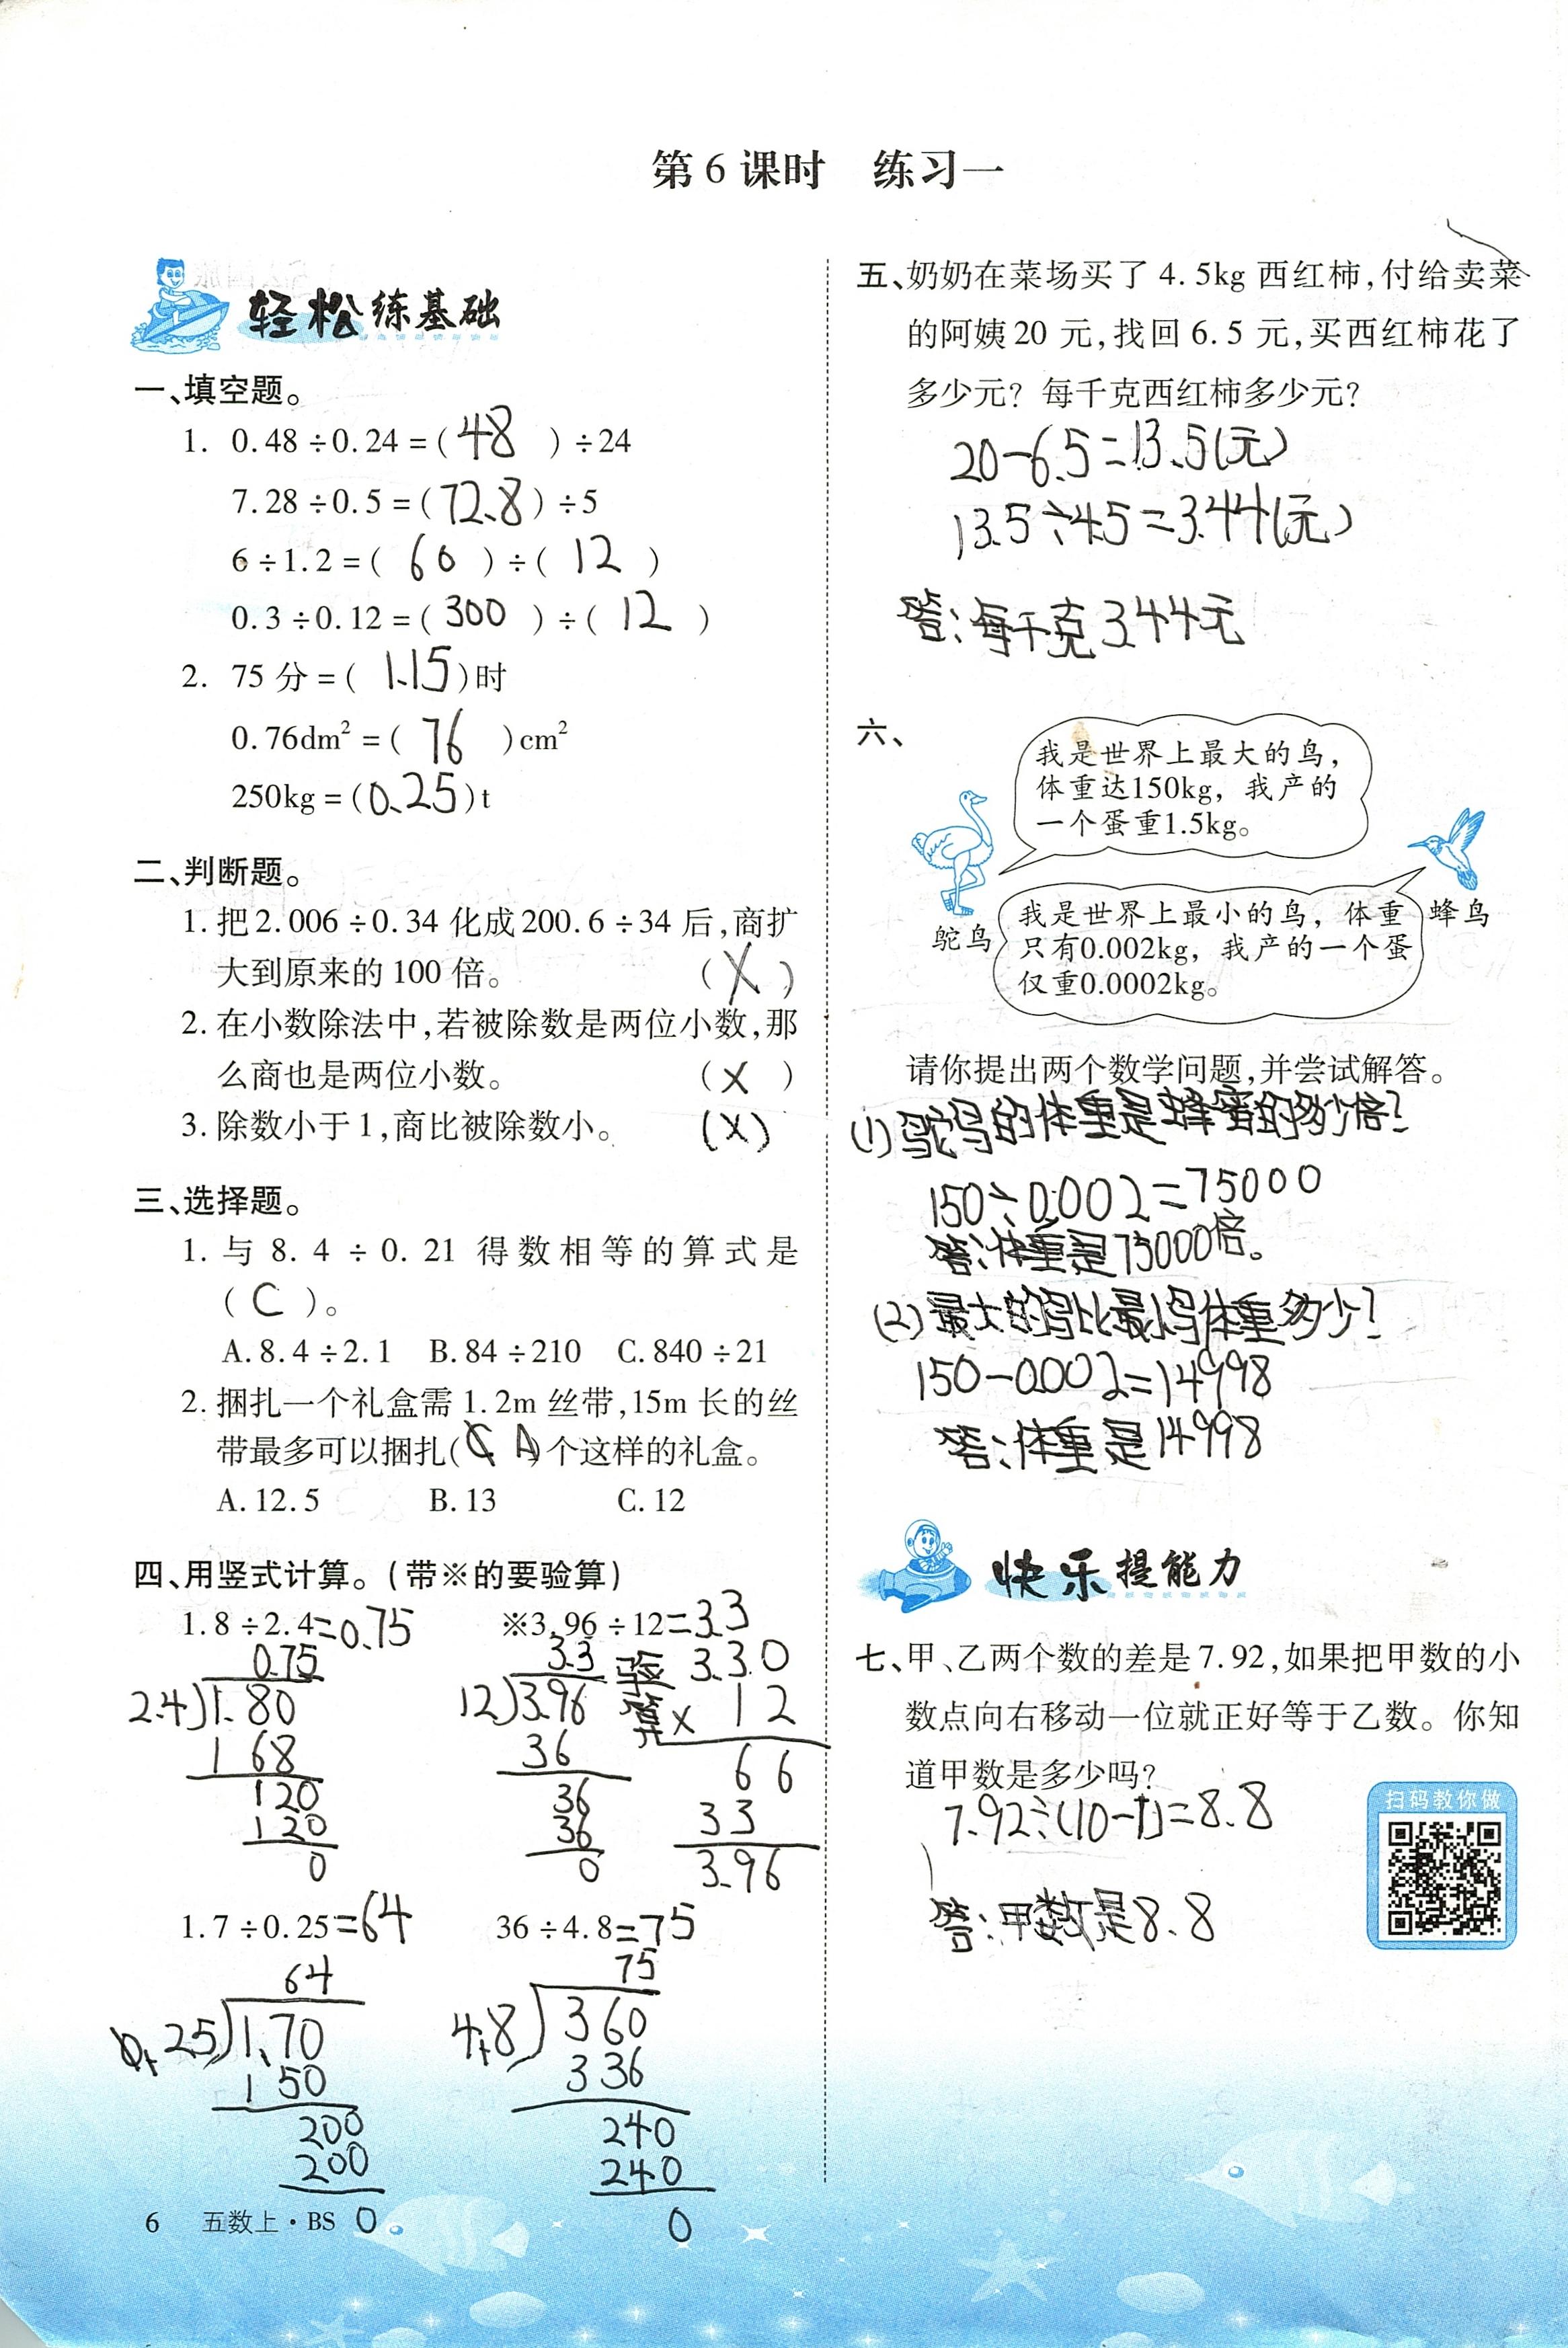 第6课时 练习一
轻松练基础
一、填空题。
1. 0.48÷0.24=(48)÷24
7.28÷0.5=(72.8)÷5
6÷1.2=(60)÷(12)
0.3÷0.12=(300)÷(12)
2. 75分=(1.15)时
0.76dm²=(76)cm²
250kg=(0.25)t
二、判断题。
1.把2.006÷0.34化成200.6÷34后,商扩
大到原来的100倍。 (X)
2.在小数除法中,若被除数是两位小数,那
么商也是两位小数。 (X)
3.除数小于1,商比被除数小。 (X)
三、选择题。
1.与8.4÷0.21得数相等的算式是
(C)。
A.8.4÷2.1 B.84÷210 C.840÷21
2.捆扎一个礼盒需1.2m丝带,15m长的丝
带最多可以捆扎(A)个这样的礼盒。
A.12.5 B.13 C.12
四、用竖式计算。(带※的要验算)
1.8÷2.4=0.75 ※3.96÷12=3.3
0.75 3.3 验算 3.30
2.4)1.80 12)3.96 × 12
168 36 66
120 36 33
120 36 3.96
0 0
1.7÷0.25=64 36÷4.8=75
64 75
0.25)1.70 4.8)360
150 336
200 240
200 240
0 0
6 五数上·BS
五、奶奶在菜场买了4.5kg西红柿,付给卖菜
的阿姨20元,找回6.5元,买西红柿花了
多少元?每千克西红柿多少元?
20-6.5=13.5(元)
13.5÷4.5=3.44(元)
答:每千克3.44元
六、
我是世界上最大的鸟,
体重达150kg,我产的
一个蛋重1.5kg。
鸵鸟
我是世界上最小的鸟,体重
只有0.002kg,我产的一个蛋
仅重0.0002kg。
蜂鸟
请你提出两个数学问题,并尝试解答。
(1)鸵鸟的体重是蜂蜜的多少倍?
150÷0.002=75000
答:体重是75000倍。
(2)最大的鸟比最小鸟体重多少?
150-0.002=14998
答:体重是14998
快乐提能力
七、甲、乙两个数的差是7.92,如果把甲数的小
数点向右移动一位就正好等于乙数。你知
道甲数是多少吗?
7.92÷(10-1)=8.8
答:甲数是8.8
扫码教你做